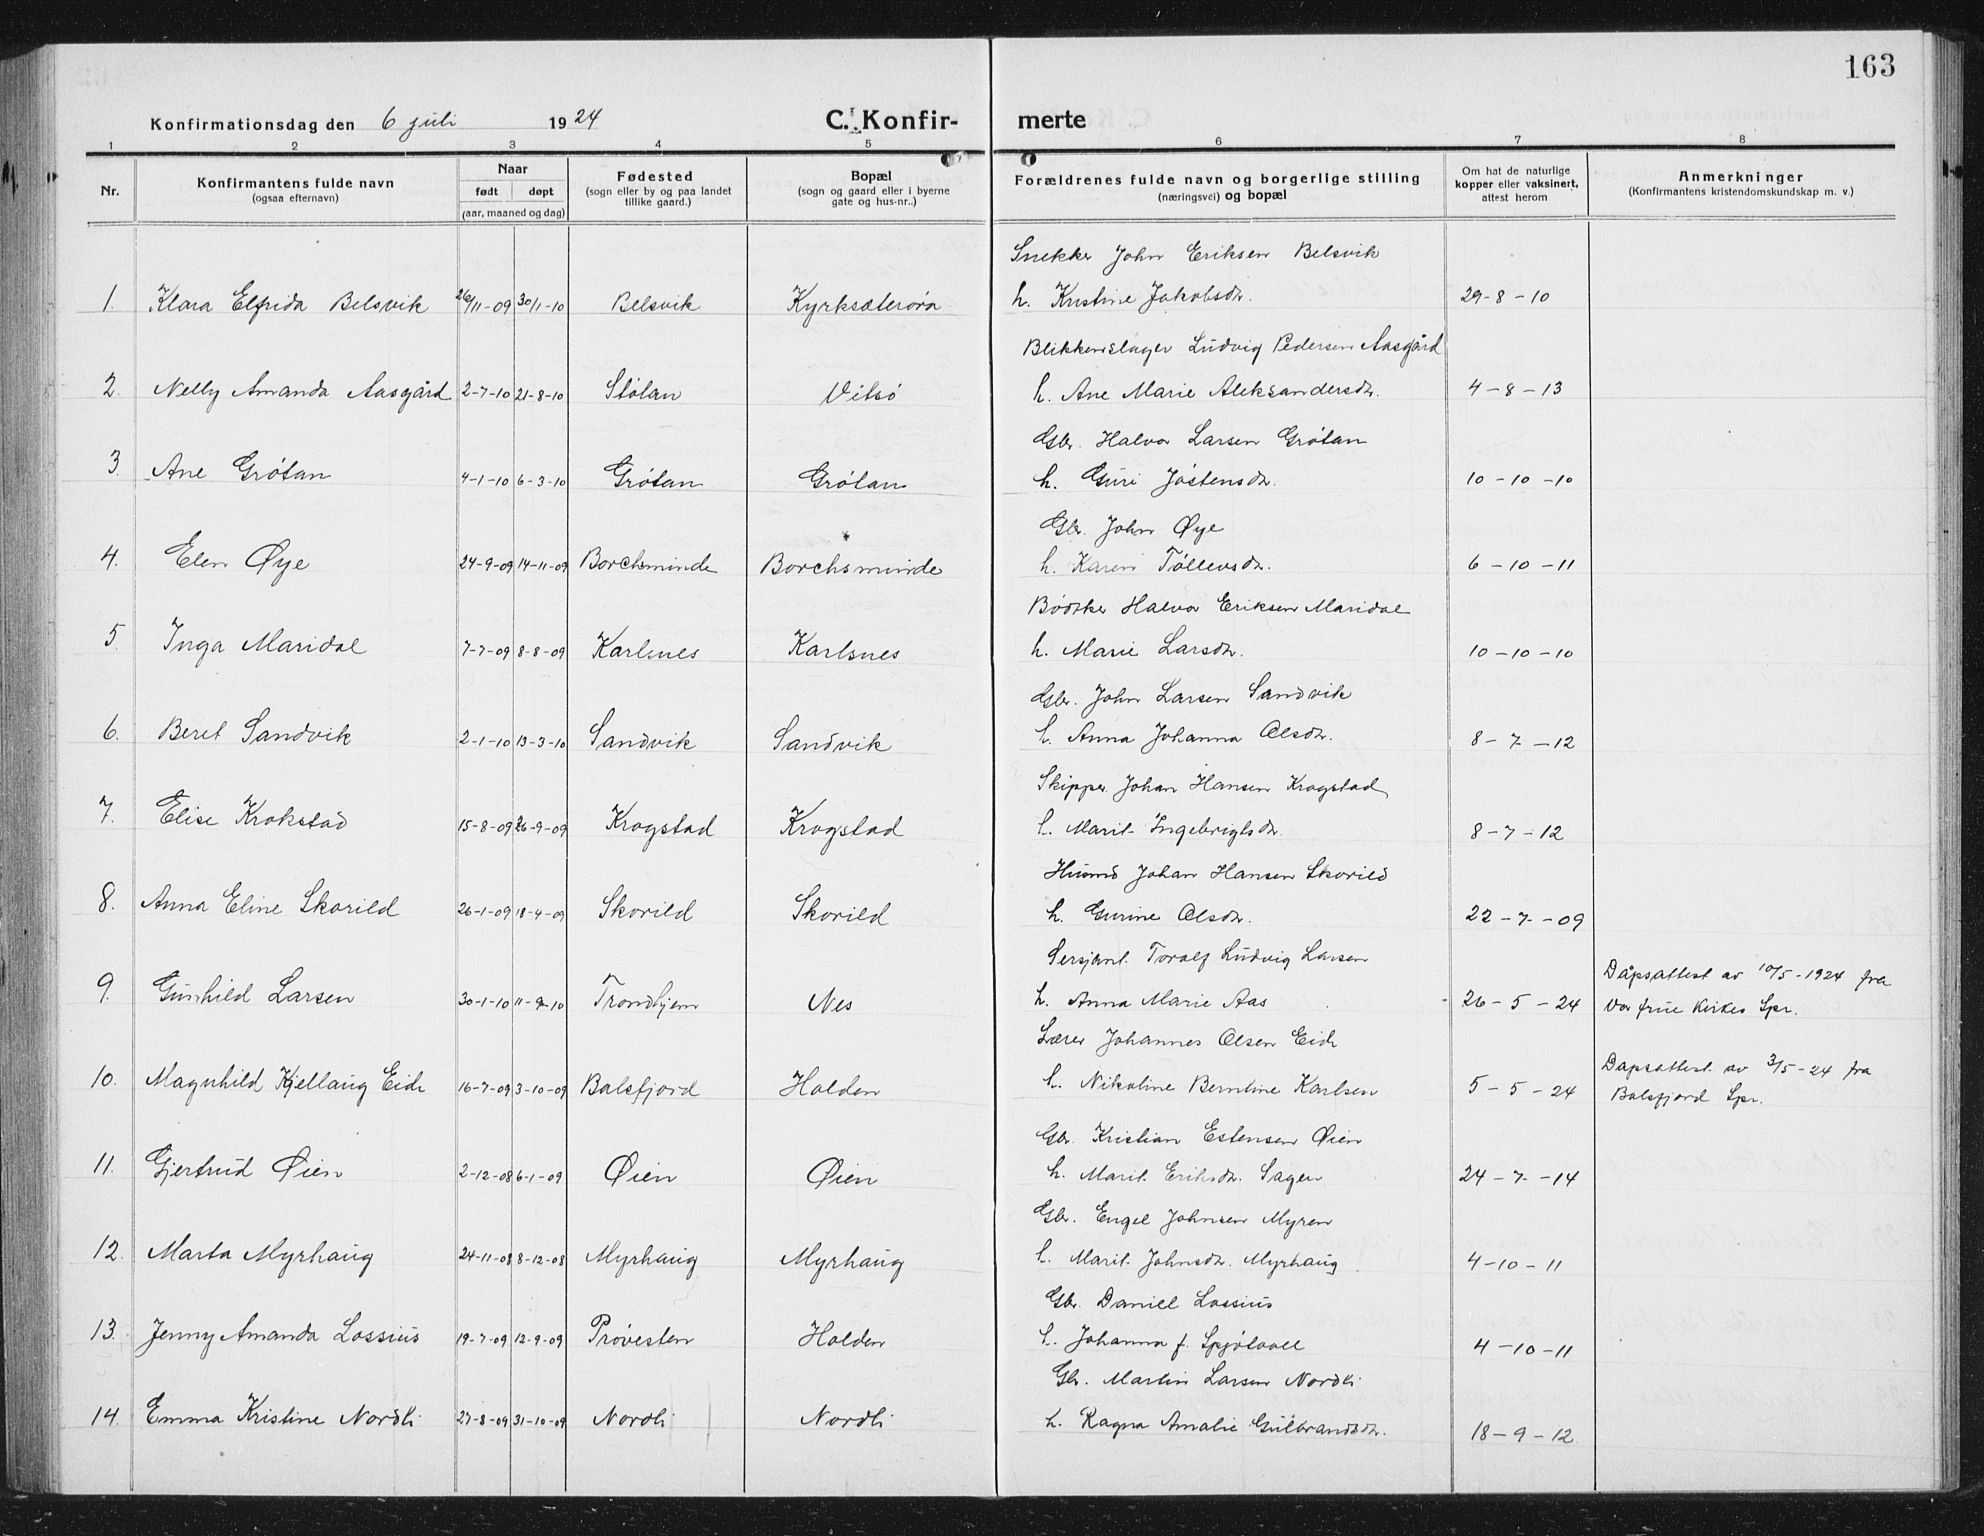 163
Konfirmationsdag den 6 juli 1924 C. Konfirmerte
1 2 3 4 5 6 7 8
Nr. Konfirmantens fulde navn (ogsaa efternavn) Naar født døpt (aar, maaned og dag) Fødested (sogn eller by og paa landet tillike gaard.) Bopæl (sogn og gaard eller i byerne gate og hus-nr..) Forældrenes fulde navn og borgerlige stilling (næringsvei) og bopæl Om hat de naturlige kopper eller vaksinert, attest herom Anmerkninger (Konfirmantens kristendomskundskap m. v.)
Snekker John Eriksen Belsvik
1. Klara Elfrida Belsvik 26/11-09 30/1-10 Belsvik Kyrksæterøra h. Kristine Jakobsdr. 29-8-10
Blikkenslager Ludvig Pedersen Aasgård
2. Nelly Amanda Aasgård 2-7-10 21-8-10 Stølan Vitsø h. Ane Marie Aleksandersdr. 4-8-13
Gbr. Halvor Larsen Grøtan
3. Ane Grøtan 4-1-10 6-3-10 Grøtan Grøtan h. Guri Jøstensdr. 10-10-10
Gbr. John Øye
4. Elen Øye 24-9-09 14-11-09 Borchsminde Borchsminde h. Karen Tøllevsdr. 6-10-11
Bødtker Halvor Eriksen Maridal
5. Inga Maridal 7-7-09 8-8-09 Karlsnes Karlsnes h. Marie Larsdr. 10-10-10
Gbr. John Larsen Sandvik
6. Beret Sandvik 2-1-10 13-3-10 Sandvik Sandvik h. Anna Johanna Olsdr. 8-7-12
Skipper Johan Hansen Krogstad
7. Elise Krokstad 15-8-09 26-9-09 Krogstad Krogstad h. Marit Ingebrigtsdr. 8-7-12
Husmd Johan Hansen Skorild
8. Anna Eline Skorild 26-1-09 18-4-09 Skorild Skorild h. Gurine Olsdr. 22-7-09
Sersjant Toralf Ludvig Larsen
Dåpsattest av 10/5-1924 fra
9. Gunhild Larsen 30-1-10 Trondhjem Nes h. Anna Marie Aas 26-5-24 Vor frue Kirkes Spr.
Lærer Johannes Olsen Eide
Dåpsattest av 3/5-24 fra
10. Magnhild Kjellaug Eide 16-7-09 3-10-09 Balsfjord Holden h. Nikoline Berntine Karlsen 5-5-24 Balsfjord Spr.
Gbr. Kristian Estensen Øien
11. Gjertrud Øien 2-12-08 6-1-09 Øien Øien h. Marit Eriksdr. Sagen 24-7-14
Gbr. Engel Johnsen Myren
12. Marta Myrhaug 24-11-08 8-12-08 Myrhaug Myrhaug h. Marit Johnsdr. Myrhaug 4-10-11
Gbr. Daniel Lossius
13. Jenny Amanda Lossius 19-7-09 12-9-09 Prøvesten Holden h. Johanna f. Spjøtvoll 4-10-11
Gbr. Martin Larsen Nordli
14. Emma Kristine Nordli 27-8-09 31-10-09 Nordli Nordli h. Ragna Amalie Gulbrandsdr. 18-9-12